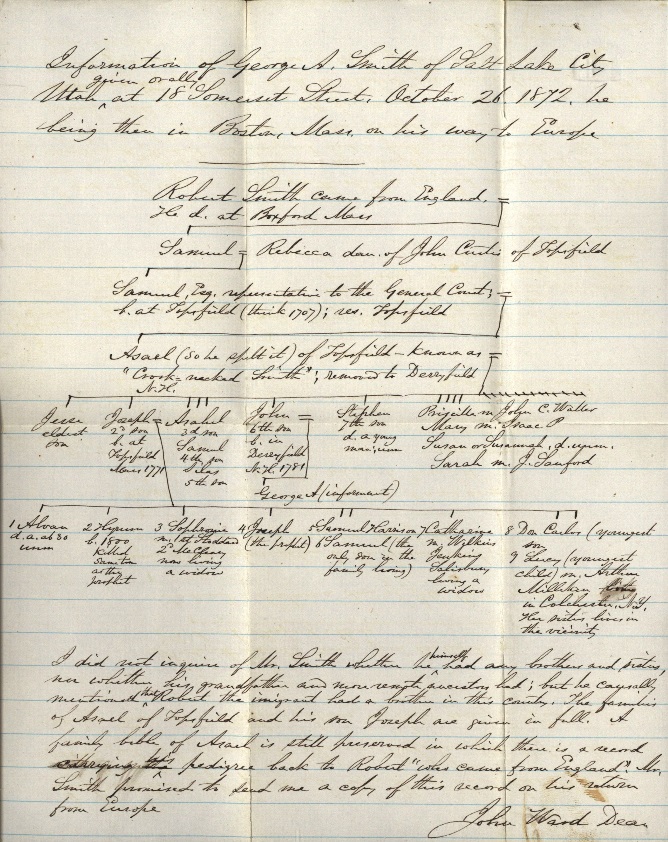 Information of George A. Smith of Salt Lake City
given orally
Utah ^ at 18 Somerset Street, October 26, 1872, he
being then in Boston, Mass, on his way to Europe
Robert Smith came from England. =
He d. at Boxford Mass
Samuel = Rebecca dau. of John Curtis of Topsfield
Samuel, Esq. representative to the General Court; =
b. at Topsfield (think 1707); res. Topsfield
Asael (so he spelt it) of Topsfield – known as =
"Crook-necked Smith"; removed to Derryfield
N.H.
Jesse
eldest
son
Joseph =
2d son
b. at
Topsfield
1771
Asahel
3d son
Samuel
4th son
Silas
5th son
John =
6th son
b. in
Derryfield
N.H. 1781
Stephen
7th son
d. a young
man; unm
Priscilla m John C. Waller
Mary m. Isaac P
Susan or Susannah, d. unm.
Sarah m. J. Sanford
George A (informant)
1 Alvan
d. a. ab 30
unm
2 Hyrum
b. 1800
killed
same time
as the
prophet
3 Sophronia
m. 1st Stoddard
2d McCleary
now living
a widow
4 Joseph
(the prophet)
5 Samuel Harrison
6 Samuel (the
only son in the
family living)
7 Catharine
m. Wilkins
Jenkins
Salisbury
living a
widow
8 Don Carlos (youngest
son
9 Lucy (youngest
child) m. Arthur
Milliken
in Colchester,
Her sisters live in
the vicinity
I did not inquire of Mr. Smith whether he ^ himself had any brothers and sisters,
nor whether his grandfather and more remote ancestors had; but he casually
mentioned ^ that Robert the imigrant had a brother in this country. The families
of Asael of Topsfield and his son Joseph are given in full. A
family bible of Asael is still preserved in which there is a record
carrying the pedigree back to Robert "who came from England". Mr.
Smith promised to send me a copy of this record on his return
from Europe
John Ward Dean